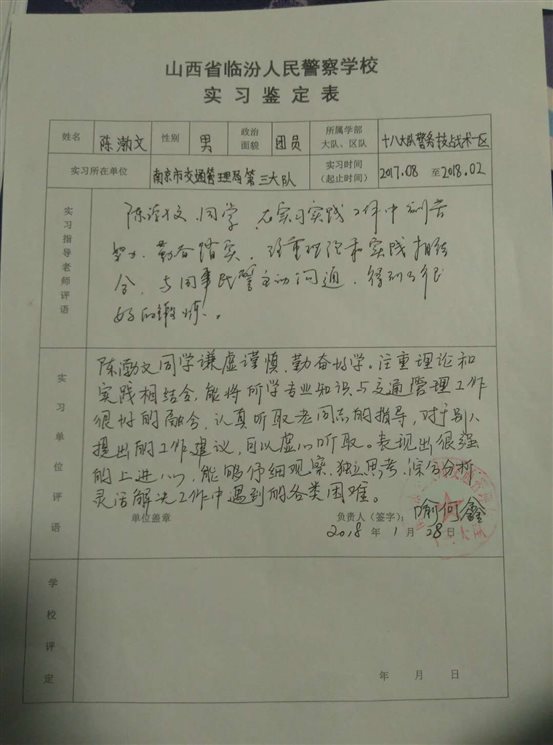 山西省临汾人民警察学校
实习鉴定表
姓名 陈瀚文 性别 男 政治面貌 团员 所属学部大队、区队 十八大队警务技战术一区
实习所在单位 南京市交通管理局第三大队 实习时间（起止时间） 2017.08 至 2018.02
实习指导老师评语
陈瀚文同学，在实习实践工作中刻苦
努力、勤奋踏实，注重理论和实践相结
合，与同事民警主动沟通，得到了很
好的锻炼。
实习单位评语
陈瀚文同学谦虚谨慎，勤奋好学。注重理论和
实践相结合，能将所学专业知识与交通管理工作
很好的融合，认真听取老同志的指导，对于别人
提出的工作建议，可以虚心听取。表现出很强
的上进心，能够仔细观察、独立思考、综合分析
灵活解决工作中遇到的各类困难。
单位盖章 负责人（签字）：喻何鑫
2018 年 1 月 28 日
学校评定
年 月 日